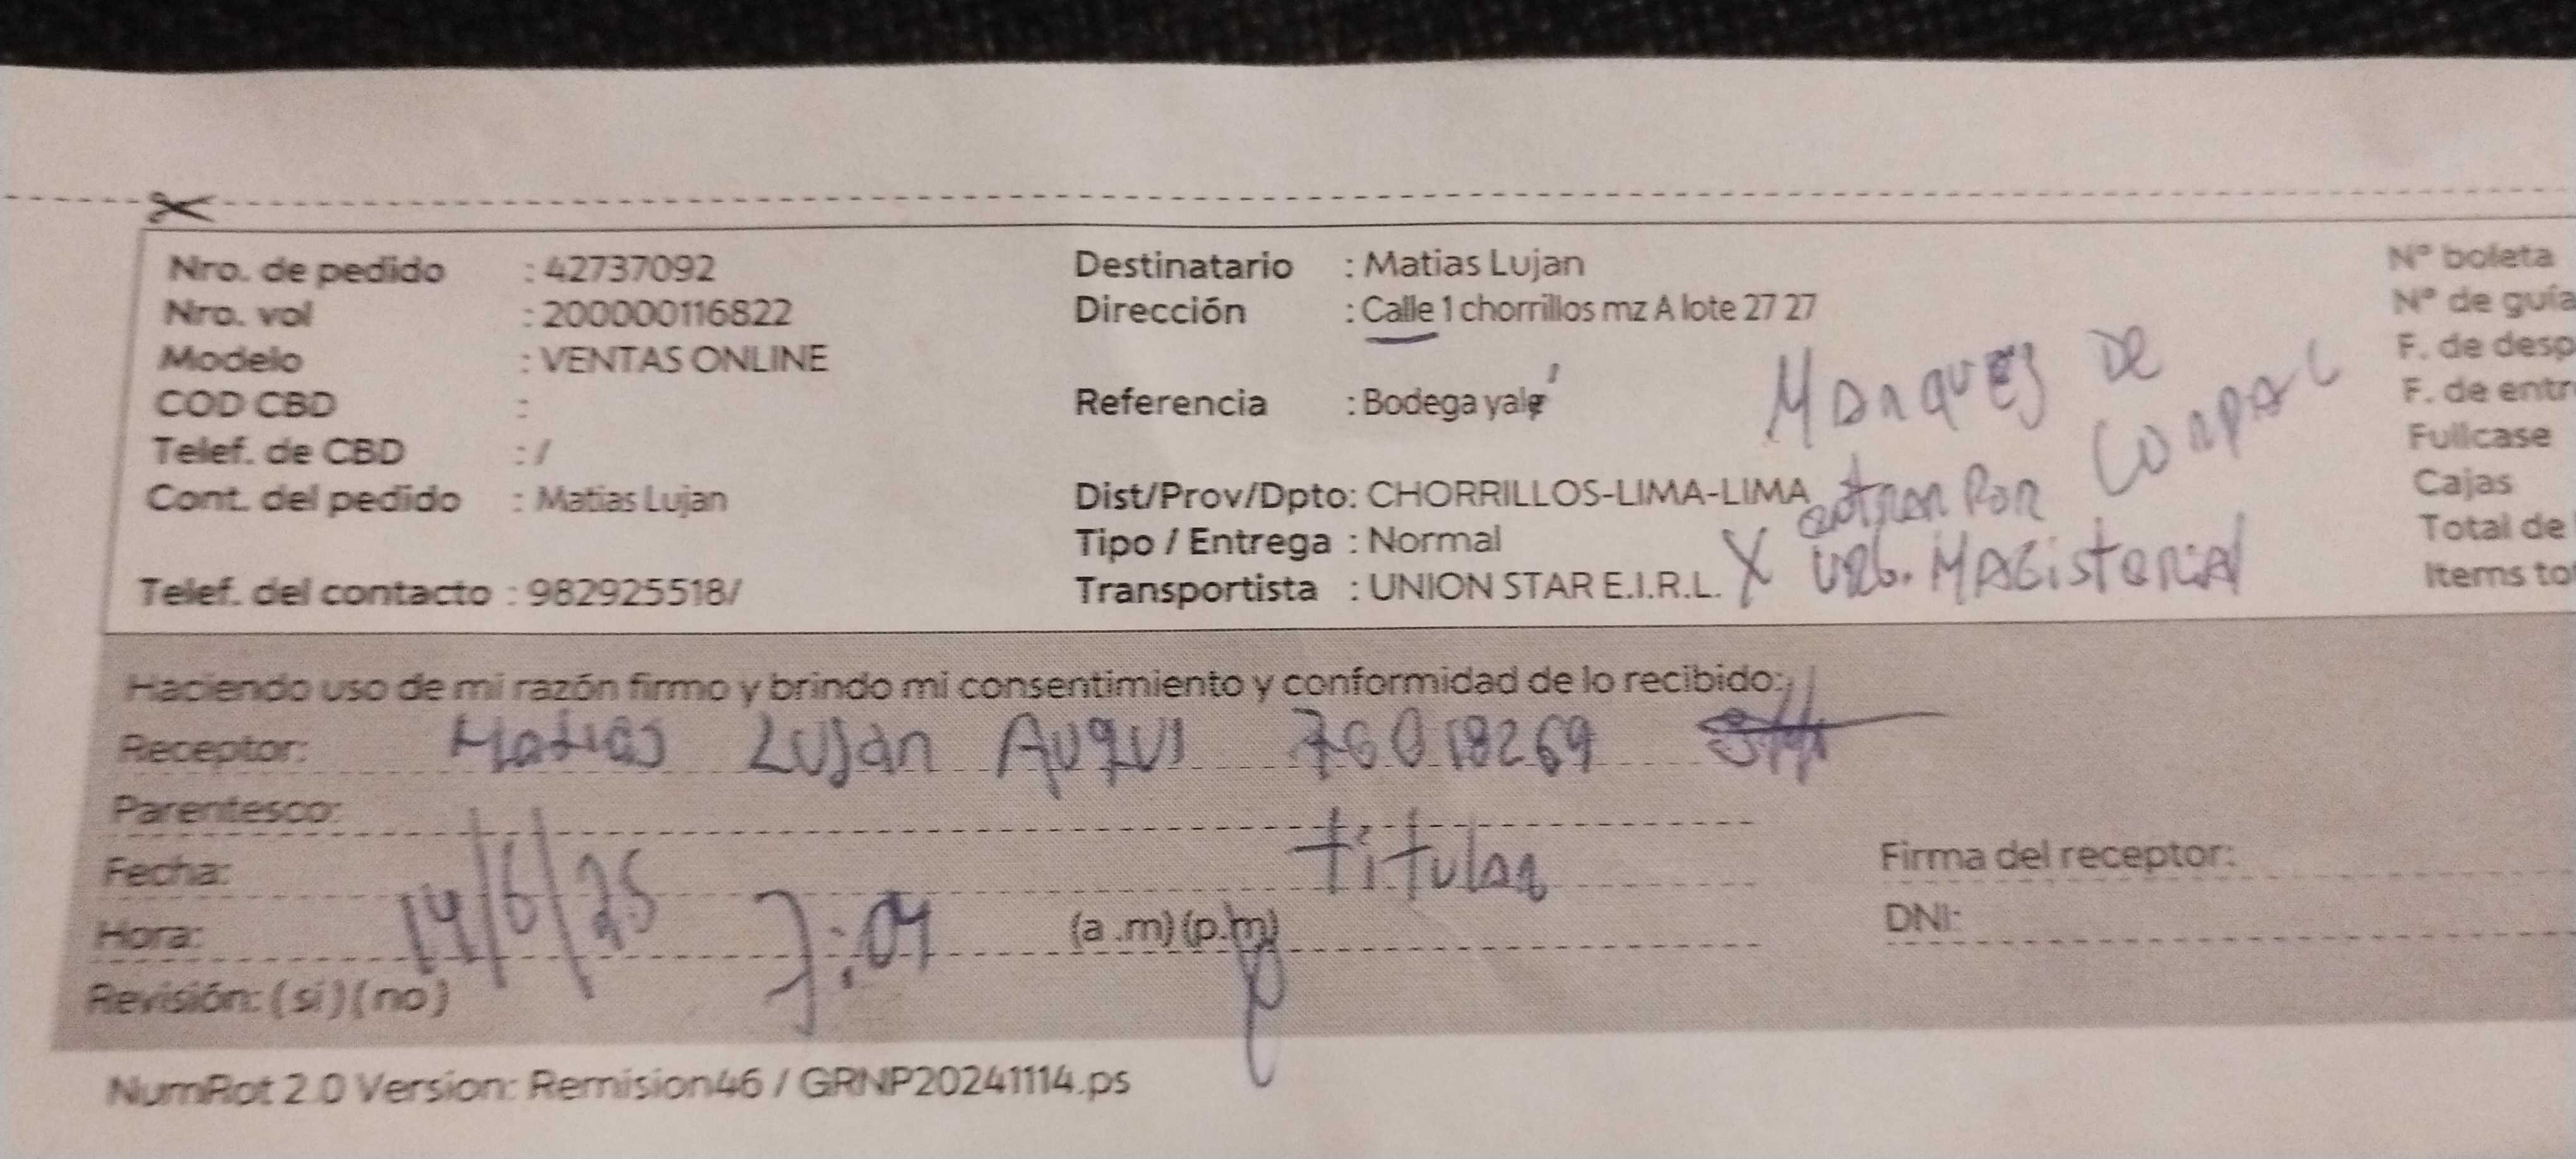 Nro. de pedido : 42737092
Nro. vol : 200000116822
Modelo : VENTAS ONLINE
COD CBD :
Telef. de CBD : /
Cont. del pedido : Matias Lujan
Telef. del contacto : 982925518/
Destinatario : Matias Lujan
Dirección : Calle 1 chorrillos mz A lote 27 27
Referencia : Bodega yale
Dist/Prov/Dpto: CHORRILLOS-LIMA-LIMA
Tipo / Entrega : Normal
Transportista : UNION STAR E.I.R.L.
Marquez De
Corpac
entran Por
X Urb. MAGisteriAl
Nº boleta
Nº de guía
F. de desp
F. de entr
Fullcase
Cajas
Total de
Items to
Haciendo uso de mi razón firmo y brindo mi consentimiento y conformidad de lo recibido:
Receptor: Matias Lujan Auqui
Parentesco: titular
Fecha: 14/6/25
Hora: 7:04 (a .m) (p.m)
Revisión: ( si ) ( no )
Firma del receptor:
DNI:
NumRot 2.0 Version: Remision46 / GRNP20241114.ps